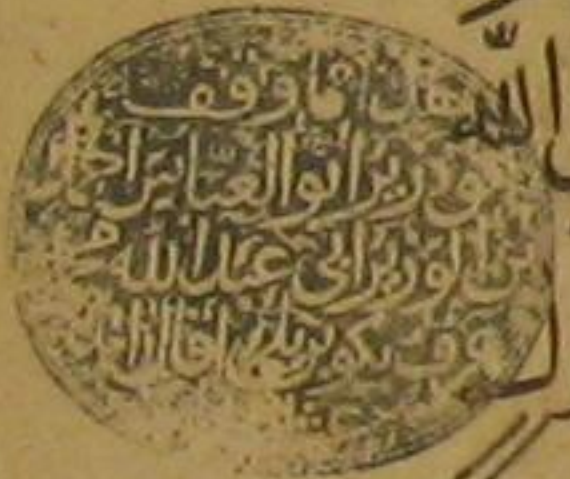 هذا ما وقف
الوزير ابو العباس احمد
بن الوزير ابي عبد الله محمد
عرف بكوبريلي اقال الله
الله